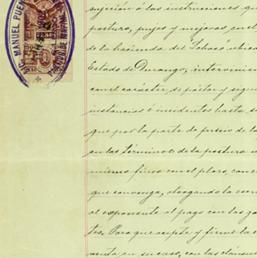 MANUEL PUE
sujeción á las instrucciones qu
postura, pujas y mejoras, en el
de la hacienda del Lobos ubica
Estado de Durango, intervinien
con el carácter de postor y segu
instancias é incidentes hasta
que por la parte de precio de la
en los términos de la postura
mismo finco en el plazo, con
que convenga, otorgando la
el exponente el pago con las
tes. Para que acepte y firme la
venta en su caso, con las cláusul